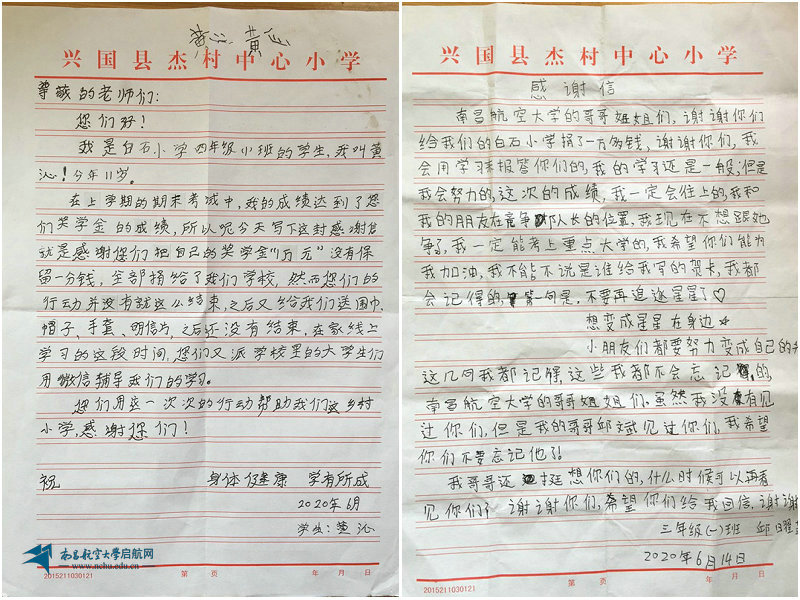 兴国县杰村中心小学
尊敬的老师们:
您们好!
我是白石小学四年级小班的学生,我叫黄
沁!今年11岁。
在上学期的期末考试中,我的成绩达到了您
们奖学金的成绩,所以呢今天写下这封感谢信
就是感谢您们把自己的奖学金“1万元”没有保
留一分钱,全部捐给了我们学校,然而您们的
行动并没有就这么结束,之后又给我们送围巾、
帽子、手套、明信片,之后还没有结束,在家线上
学习的这段时间,您们又派学校里的大学生们
用微信辅导我们的学习。
您们用这一次次的行动帮助我们这乡村
小学,感谢您们!
祝
身体健康 学有所成
2020年6月
学生:黄沁
南昌航空大学启航网
www.nchu.edu.cn
2015211030121 第 页 年 月 日
兴国县杰村中心小学
感谢信
南昌航空大学的哥哥姐姐们,谢谢你们
给我们的白石小学捐了一万多钱,谢谢你们,我
会用学习来报答你们的,我的学习还是一般,但是
我会努力的,这次的成绩,我一定会往上的,我和
我的朋友在竞争队长的位置,我现在不想跟她
争了,我一定能考上重点大学的,我希望你们能为
我加油,我不能不说是谁给我写的贺卡,我都
会记得的,第一句是,不要再追逐星星了♡
想变成星星在身边☆
小朋友们都要努力变成自己的
这几句我都记得,这些我都不会忘记的,
南昌航空大学的哥哥姐姐们,虽然我没有见
过你们,但是我的哥哥邱斌见过你们,我希望
你们不要忘记他了!
我哥哥还挺想你们的,什么时候可以再看
见你们?谢谢你们,希望你们给我回信,谢谢
三年级(一)班 邱
2020年6月14日
2015211030121 第 页 年 月 日